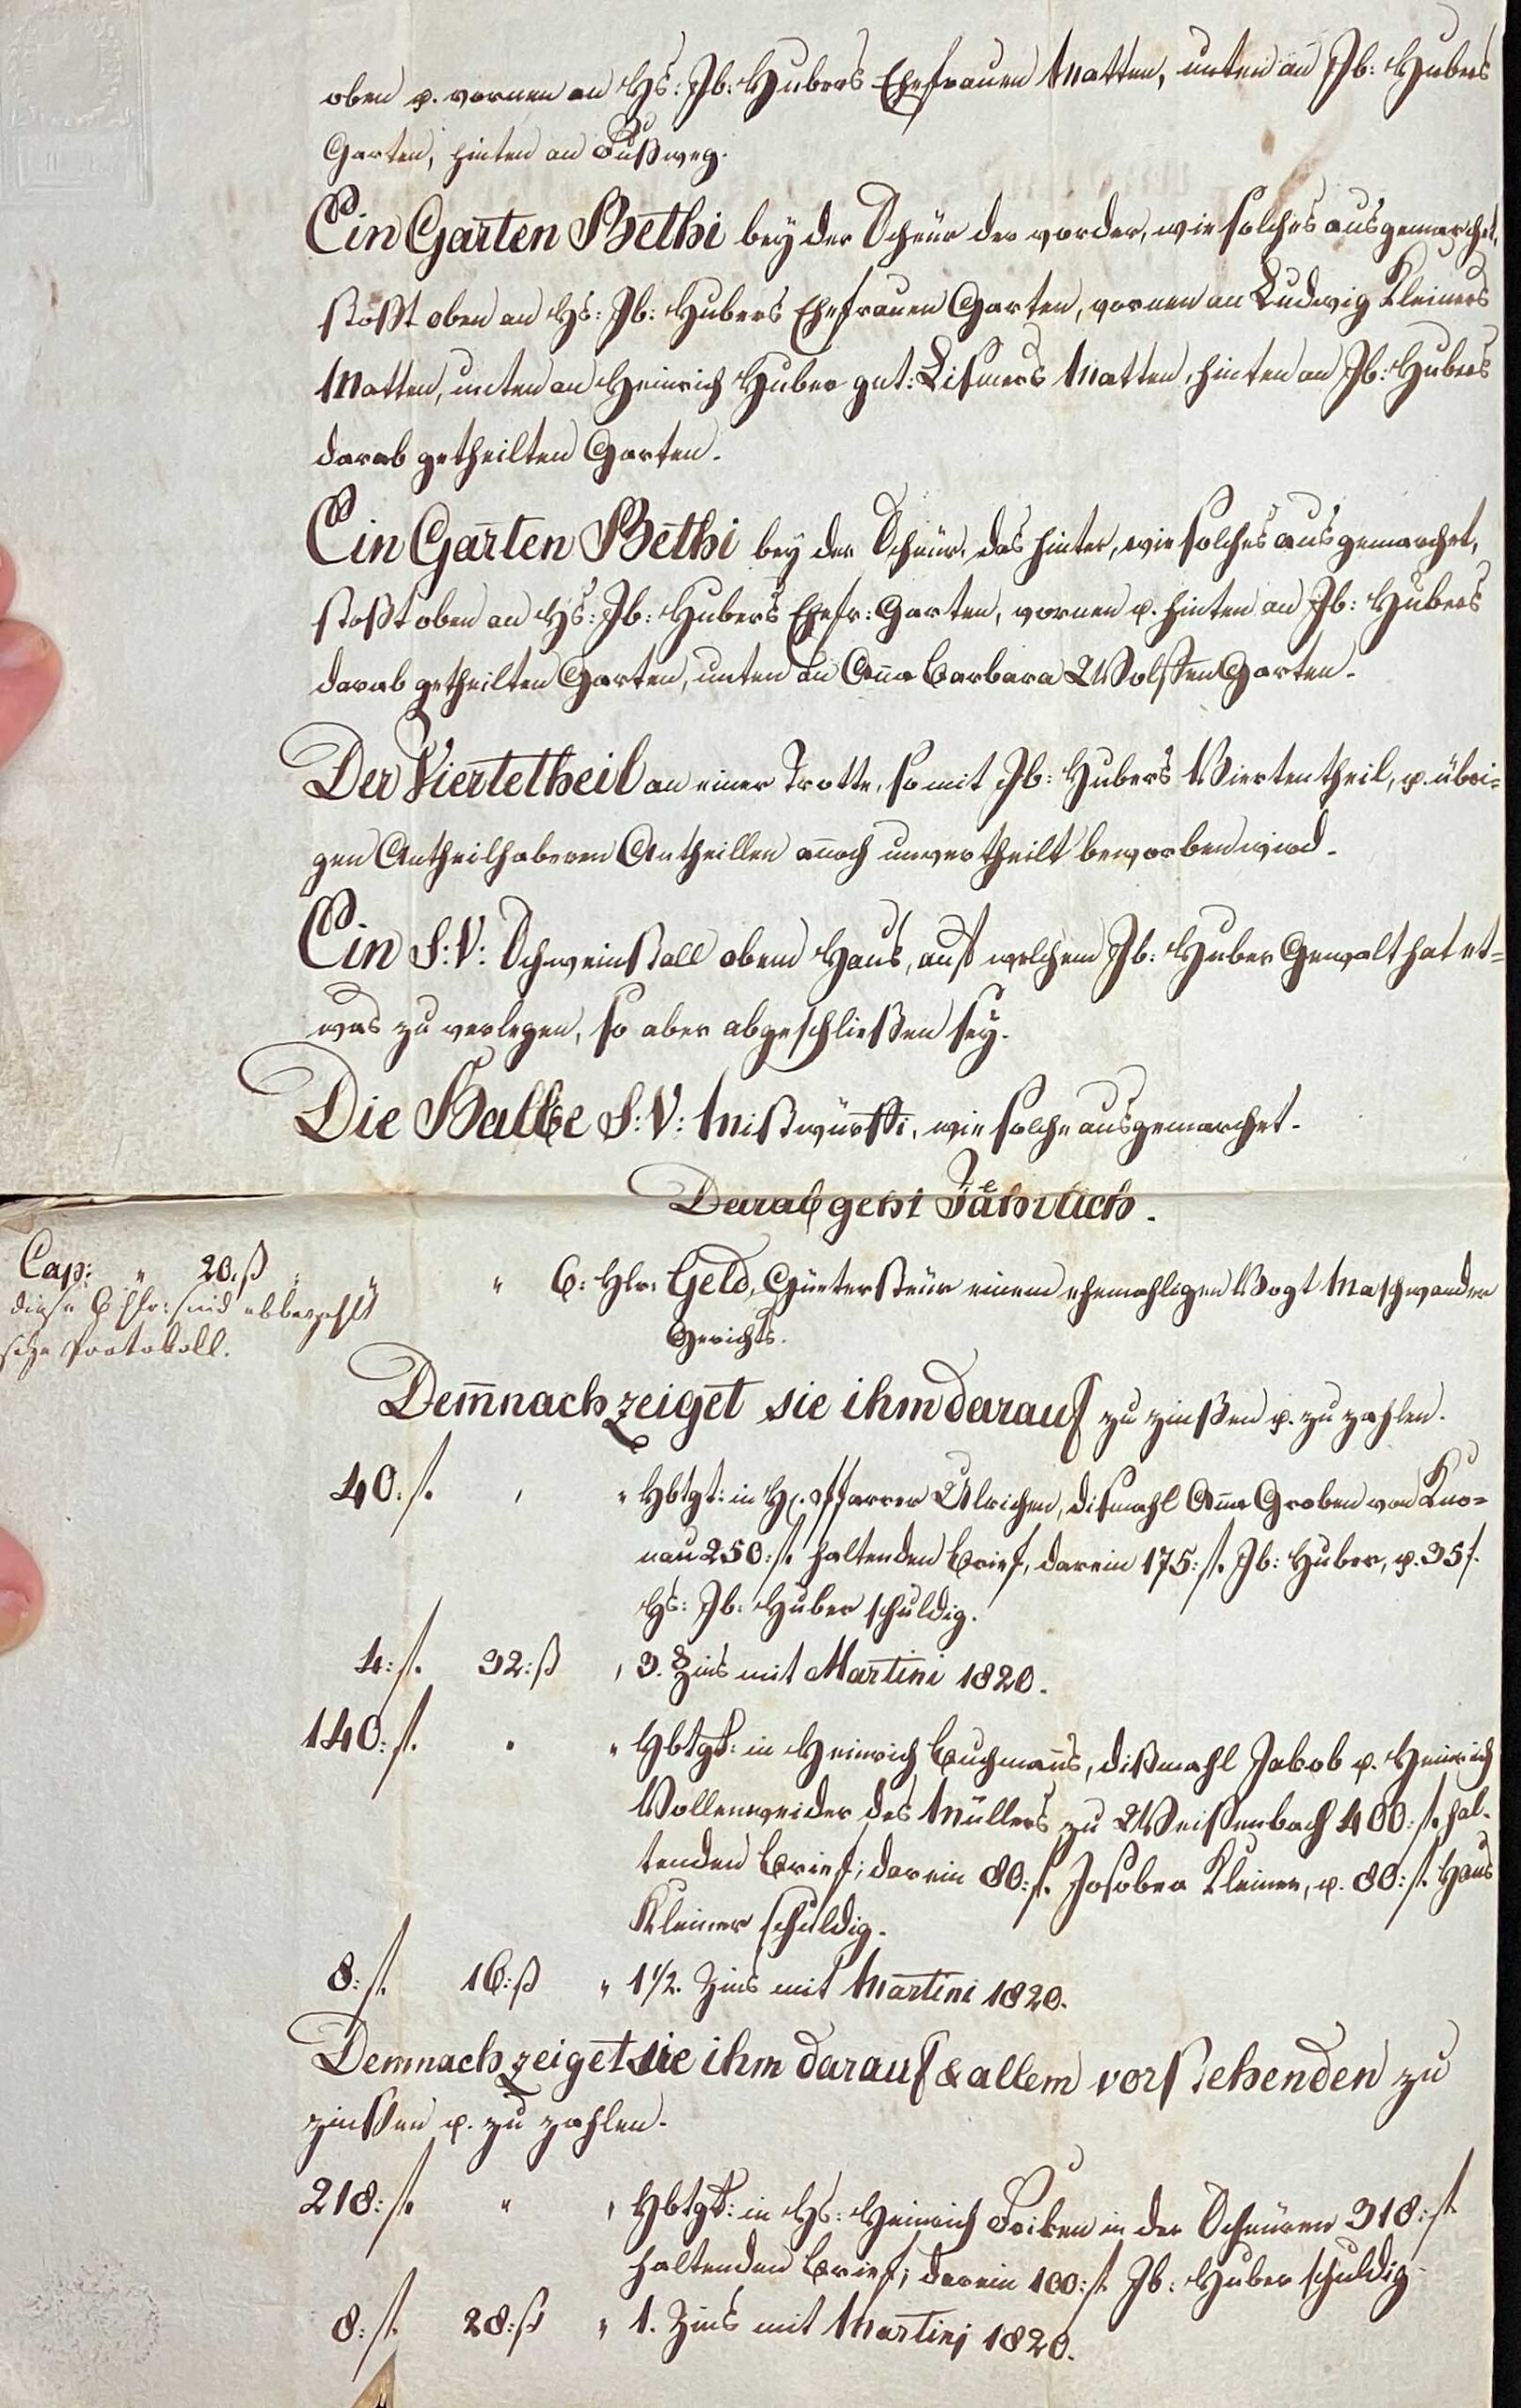 oben u. vornen an Hs: Jb: Hubers Ehefrauen Matten, unten an Jb: Hubers
Garten, hinten an Fußweg.
Ein Garten Bethi bey der Scheür der vorder, wie solches ausgemarchet,
stoßt oben an Hs: Jb: Hubers Ehefrauen Garten, vornen an Ludwig Kleiners
Matten, unten an Heinrich Huber gnt: Lismers Matten, hinten an Jb: Hubers
darab getheilten Garten.
Ein Garten Bethi bey der Scheür, das hinter, wie solches ausgemarchet,
stoßt oben an Hs: Jb: Hubers Ehefr: Garten, vornen u. hinten an Jb: Hubers
darab getheilten Garten, unten an Aña Barbara Garten.
Der Viertetheil an einer Trotte, so mit Jb: Hubers Viertentheil, u. übri=
gen Antheilhaberen Antheillen annoch unvertheilt beworben wird.
Ein S:V: Schweinstall obem Haus, auf welchem Jb: Huber Gewalt hat et=
was zu verlegen, so aber abgeschließen sey.
Die Halbe S:V: Mistwürffi, wie solche ausgemarchet.
Darab geht Jährlich.
Cap: " 20.ß
diese 6 Hlr: sind abbezahlt
siehe Protokoll.
" 6: Hlr: Geld, Güetersteür einem ehemahligen Vogt Maschwander
Gerichts.
Dem̄nach zeiget sie ihm darauf zu zinßen u. zu zahlen.
40: fl. " " Hbtgt: in Hr. Pfarrer Ulrichen, dismahl Aña Groben von Kno=
nau 250: fl. haltenden Brief, darein 175: fl. Jb: Huber, u. 35 f.
Hs: Jb: Huber schuldig.
4: fl. 32: ß " 3. Zins mit Martini 1820.
140: fl. " " Hbtgt: in Heinrich Buchmañs, dißmahl Jakob u. Heinrich
Vollenweider des Müllers zu Weißenbach 400: fl. hal=
tenden Brief; darein 80: fl. Kleiner, u. 80: fl. Hans
Kleiner schuldig.
8: fl. 16: ß " 1 1/2. Zins mit Martini 1820.
Demnach zeiget sie ihm darauf & allem vorstehenden zu
zinßen u. zu zahlen.
218: fl. " " Hbtgt: in Hs: Heinrich Friken in der Scheüren 318: fl.
haltenden Brief; darein 100: fl. Jb: Huber schuldig.
8: fl. 28: ß " 1. Zins mit Martini 1820.